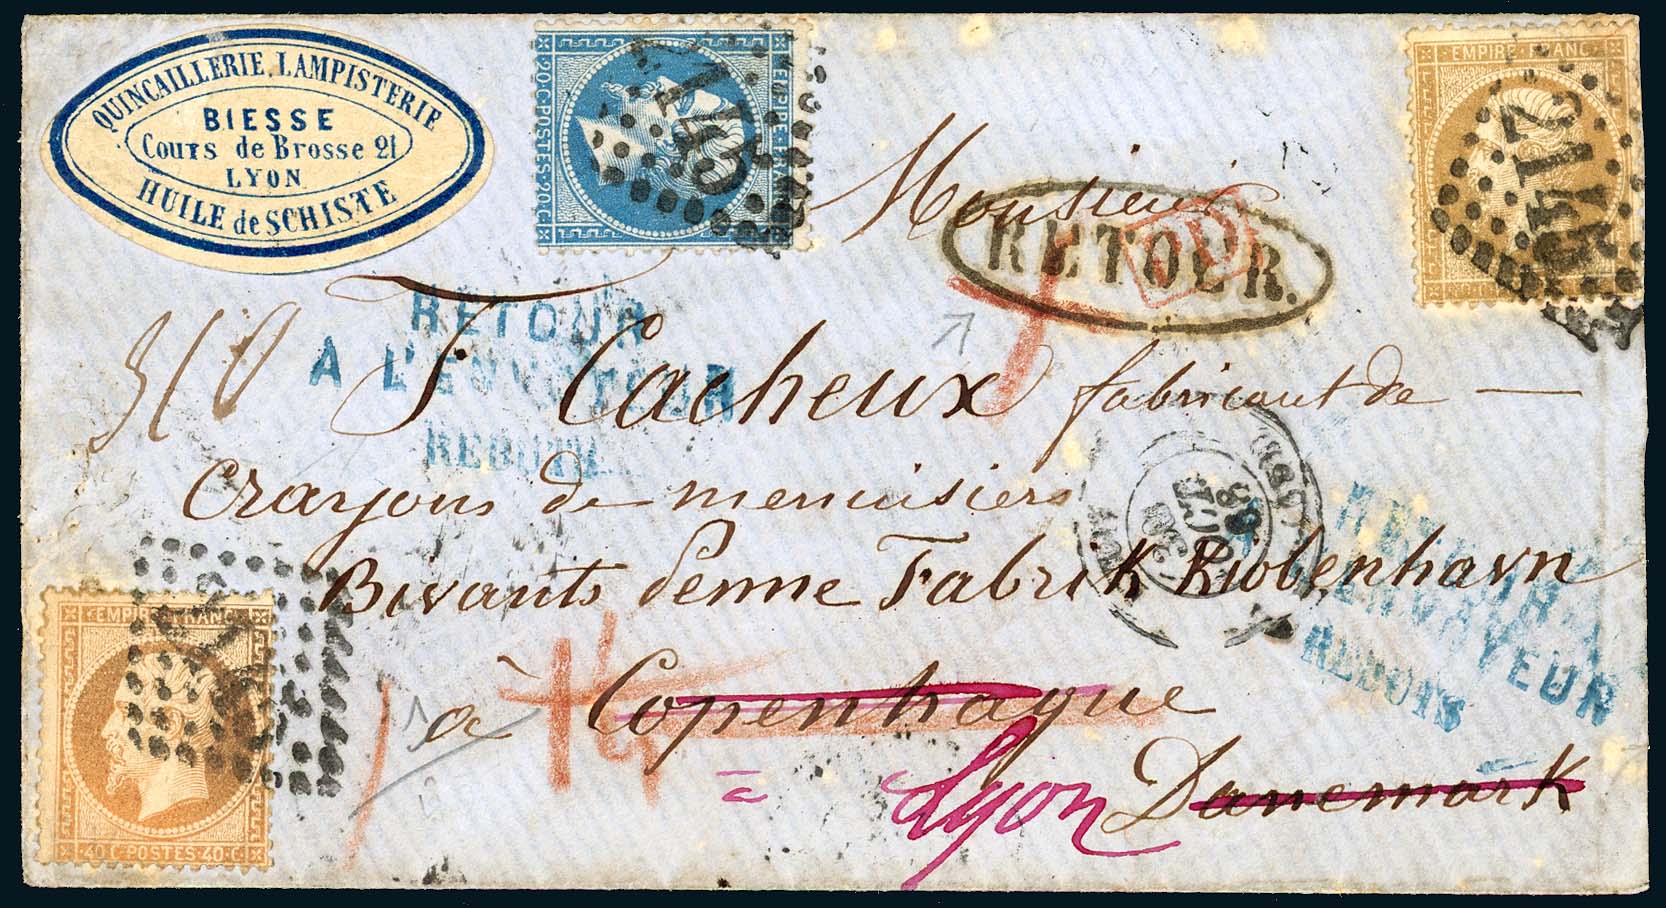 QUINCAILLERIE, LAMPISTERIE
BIESSE
Cours de Brosse 21
LYON
HUILE de SCHISTE
20.C.POSTES.20.C
EMPIRE FRANC
EMPIRE FRANC
2145
Monsieur
RETOUR.
PD
RETOUR
A L'ENVOYEUR
REBUTS
310
J. Cacheux fabricant de
crayons de menuisiers
Fabrik Kiobenhavn
à Copenhague
Lyon Danemark
ENVOYEUR
REBUTS
EMPIRE FRANC
40 C. POSTES 40 C.